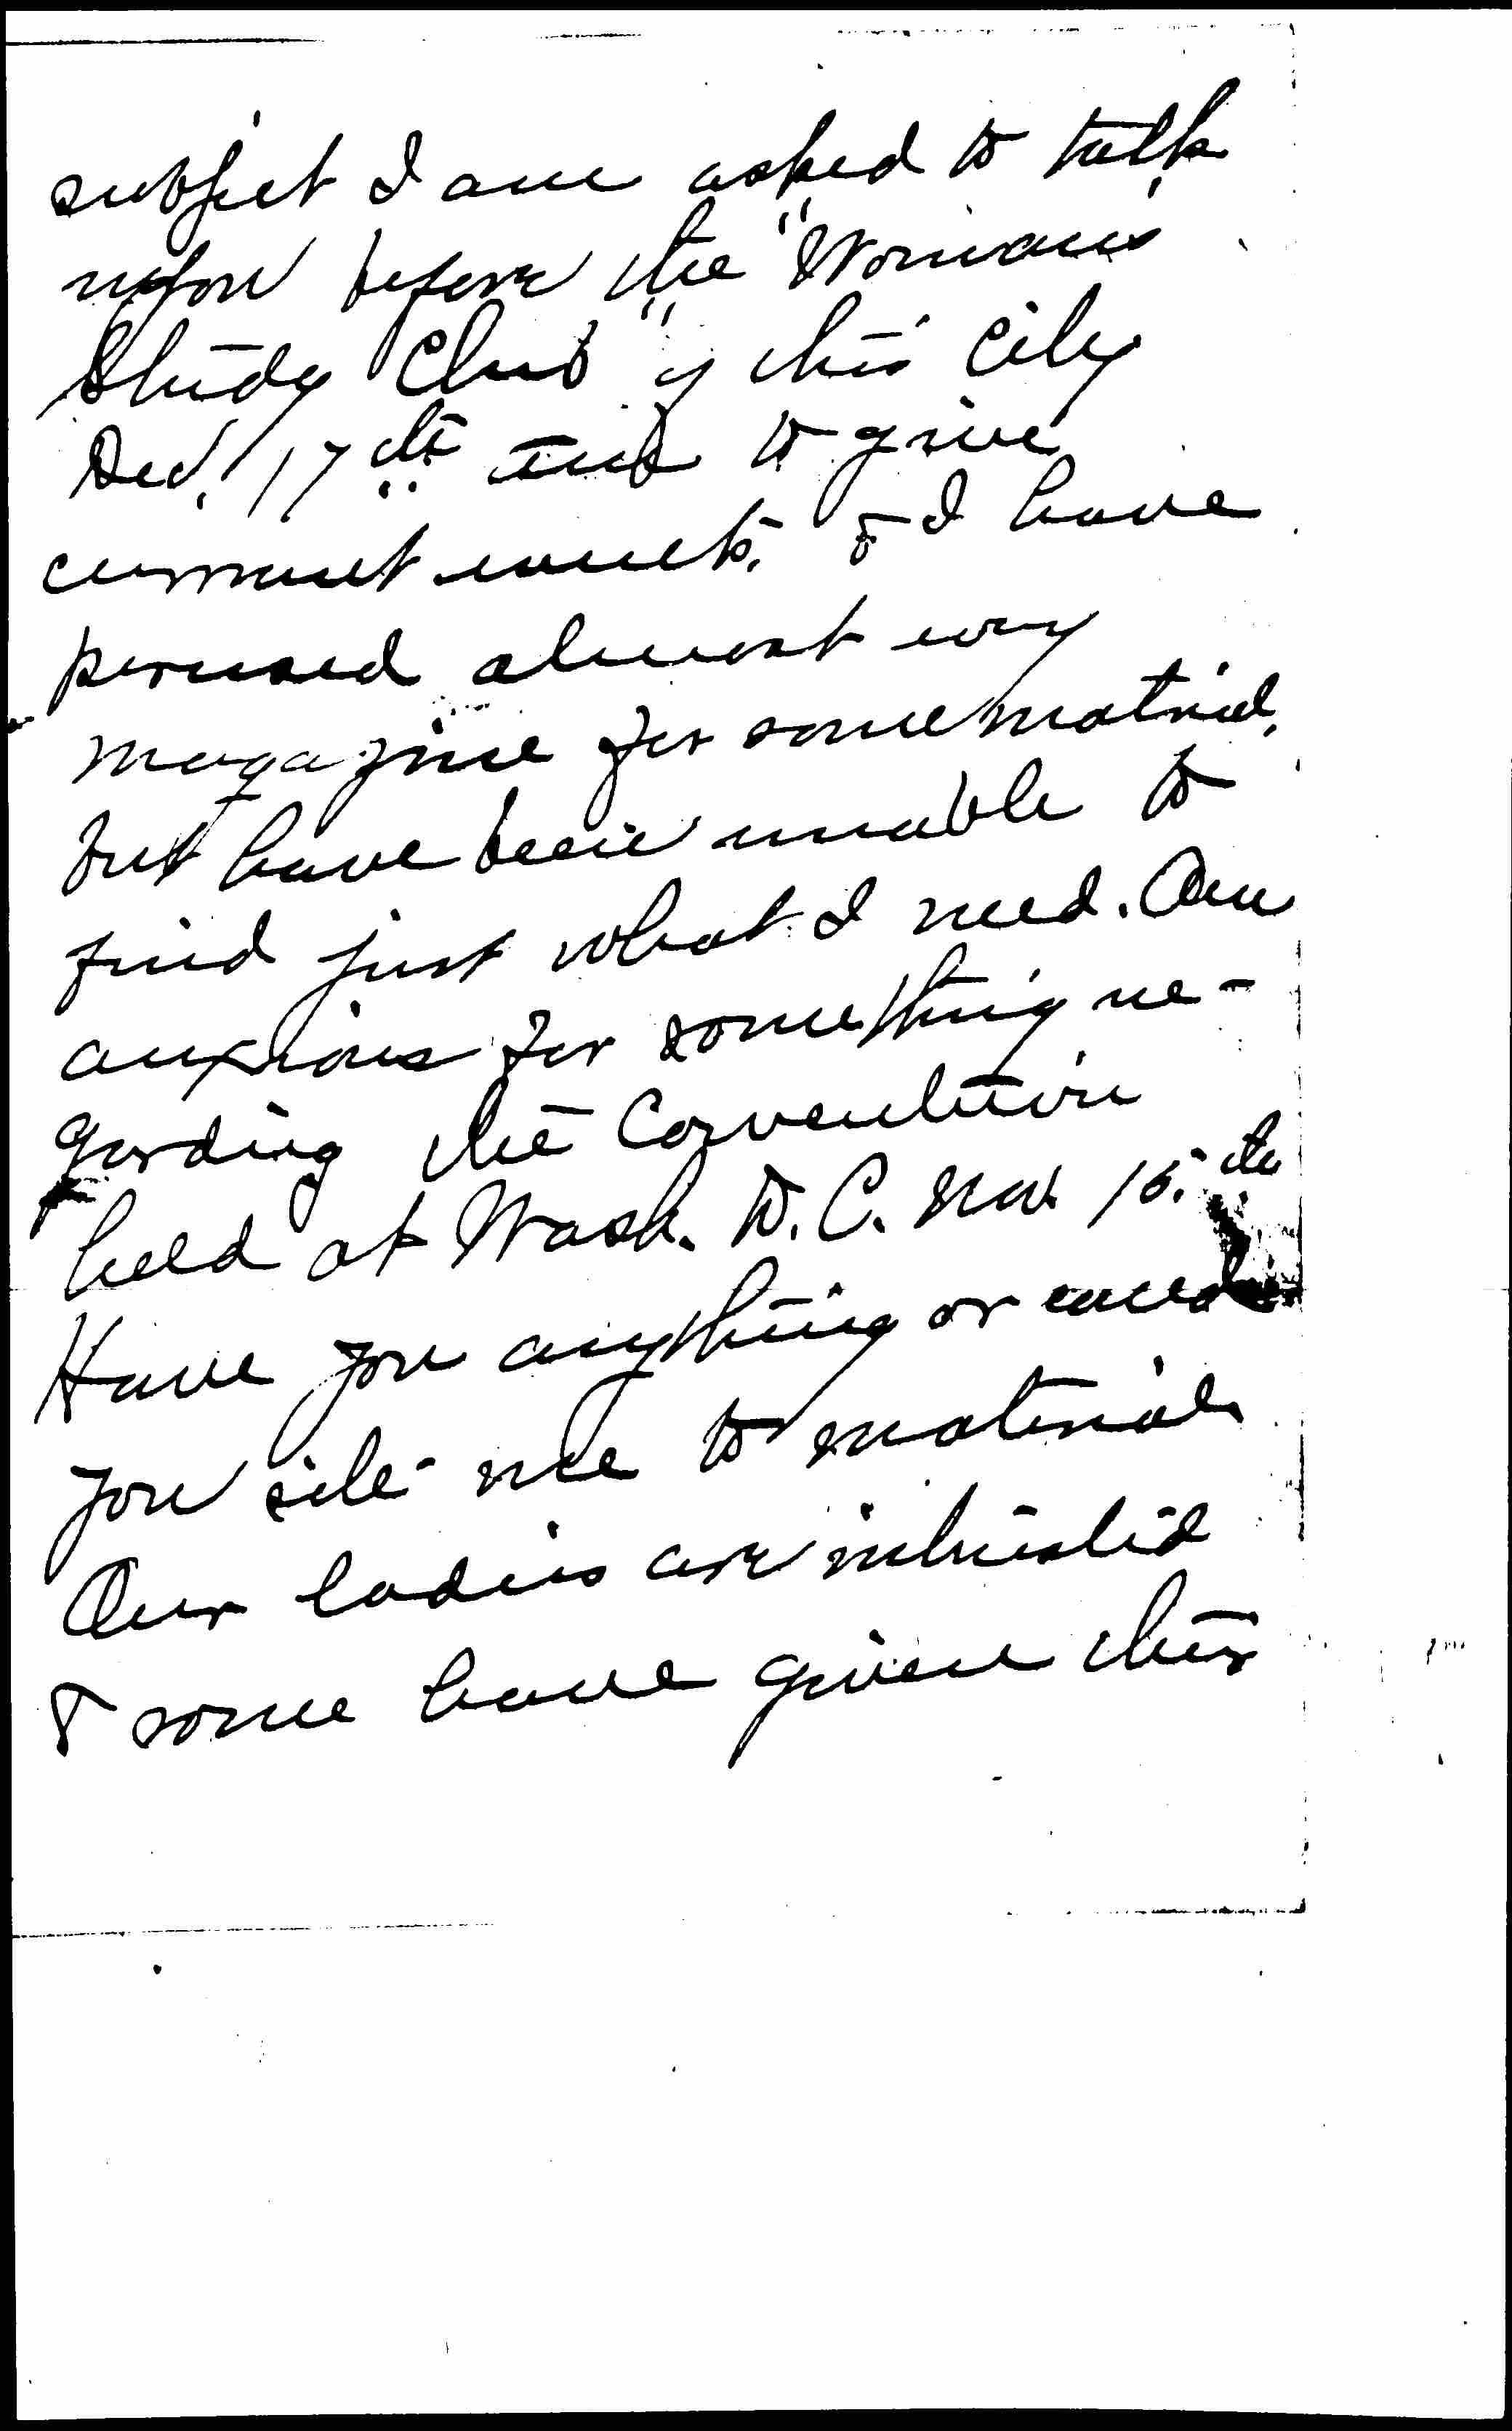 subject I am asked to talk
upon before the "Woman's
Study Club" of this City
Dec. 17th and to give
current events. & I have
perused almost every
magazine for some material,
but have been unable to
find just what I need. Am
anxious for something re-
garding the Convention
held at Wash. D.C. Nov. 15.th
Have you anything or could
you cite me to material
Our ladies are interested
& some have given their